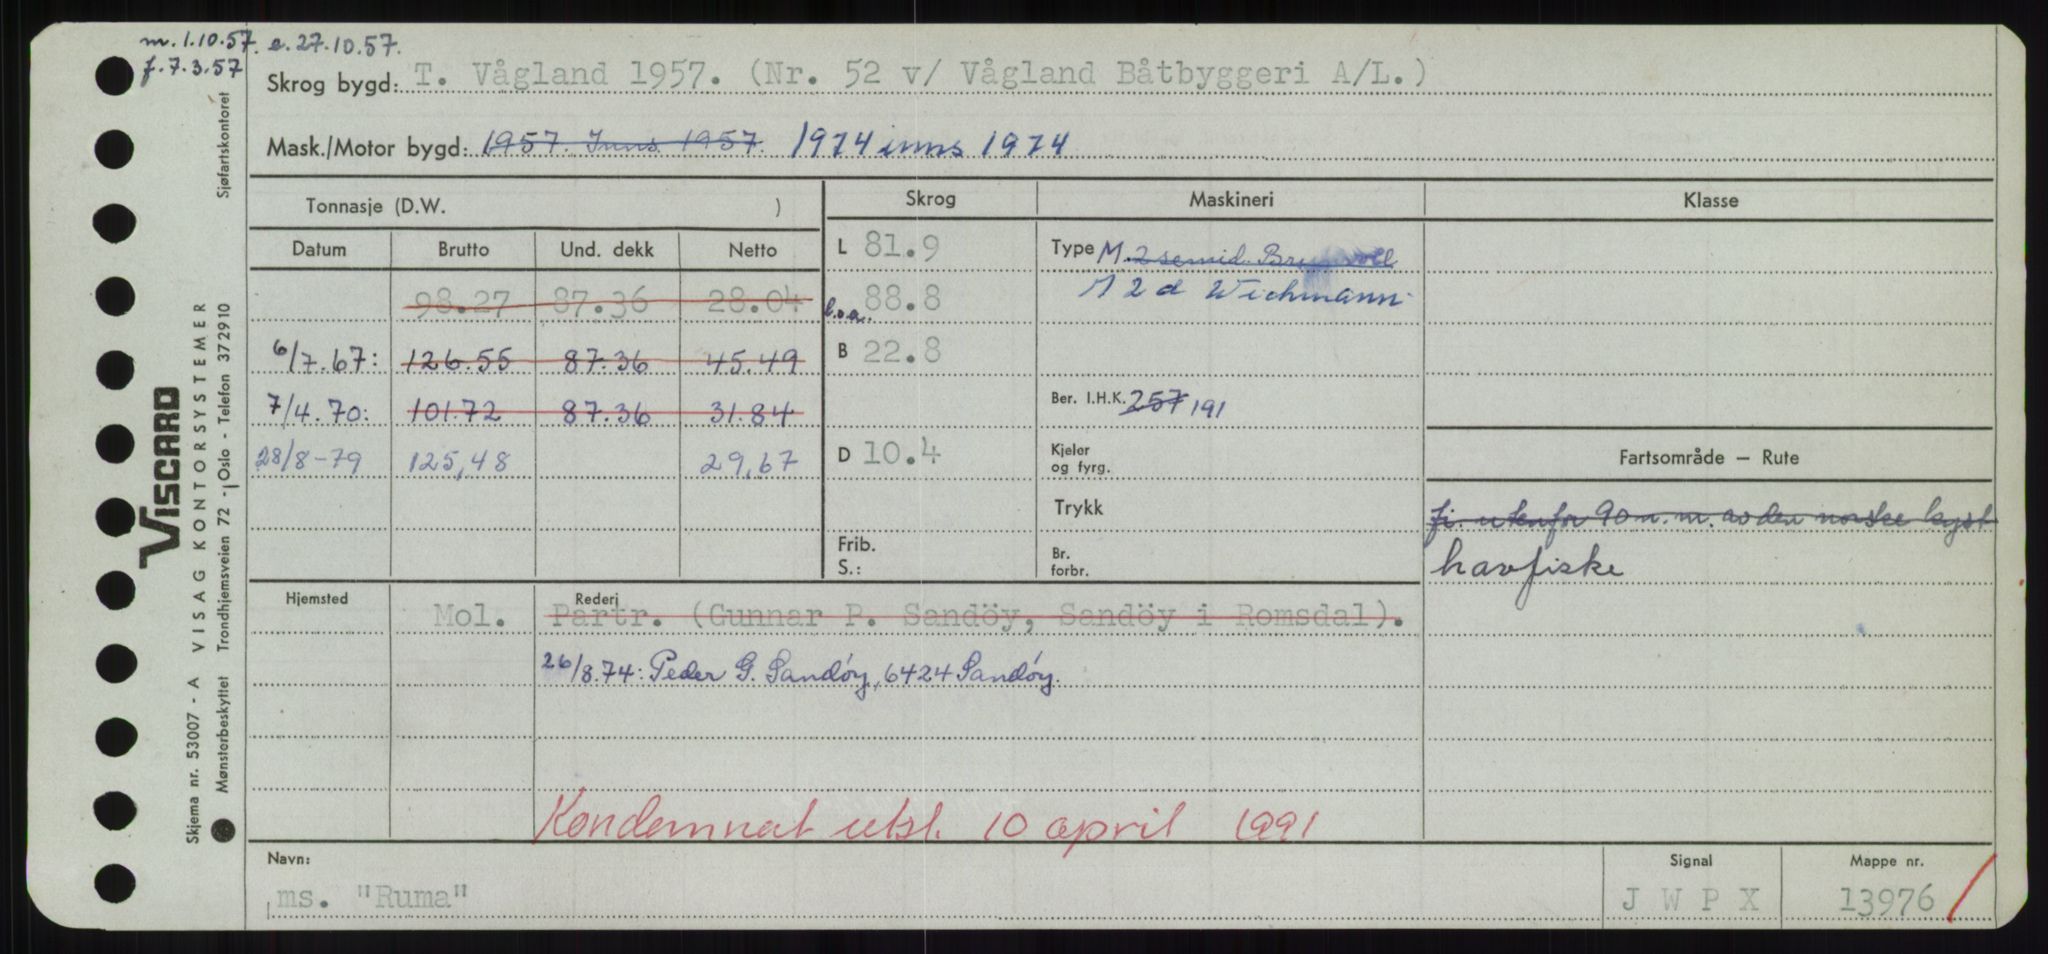 m. 1.10.57. e. 27.10.57.
f. 7.3.57
Skrog bygd: T. Vågland 1957. (Nr. 52 v/ Vågland Båtbyggeri A/L.)
Mask./Motor bygd: 1957. Inns. 1957. 1974 inns 1974
Tonnasje (D.W. ) Skrog Maskineri Klasse
Datum Brutto Und. dekk Netto L 81.9 Type M. 2 semid. Brunvoll
98.27 87.36 28.04 l.o.a. 88.8 M 2 d Wichmann
6/7.67: 126.55 87.36 45.49 B 22.8
7/4.70: 101.72 87.36 31.84 Ber. I.H.K. 257 191
28/8-79 125,48 29,67 D 10.4 Kjeler
og fyrg.
Fartsområde – Rute
Trykk
fi. utenfor 90 n.m. av den norske kyst
Frib.
S.:
Br.
forbr.
havfiske
Hjemsted Rederi
Mol. Partr. (Gunnar P. Sandöy, Sandöy i Romsdal).
26/8.74: Peder G. Sandöy, 6424 Sandöy.
Kondemnat utsl. 10 april 1991
Navn: Signal Mappe nr.
ms. "Ruma" J W P X 13976
Sjøfartskontoret
VISCARD
VISAG KONTORSYSTEMER
Trondhjemsveien 72 - Oslo - Telefon 372910
Skjema nr. 53007 - A
Mønsterbeskyttet